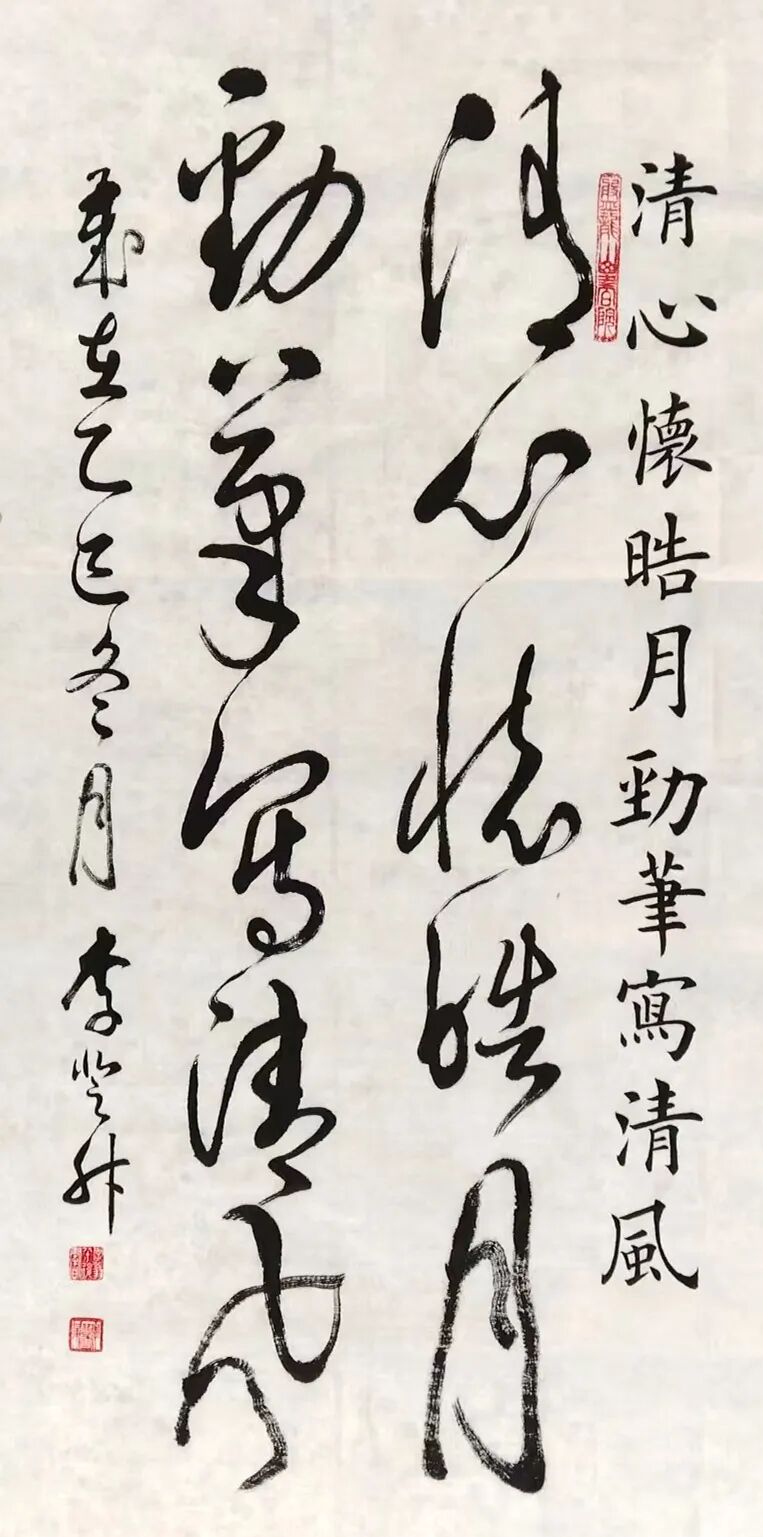 清心懷晧月勁筆寫清風
清心懷皓月
勁筆寫清風
歲在乙巳冬月李登舟